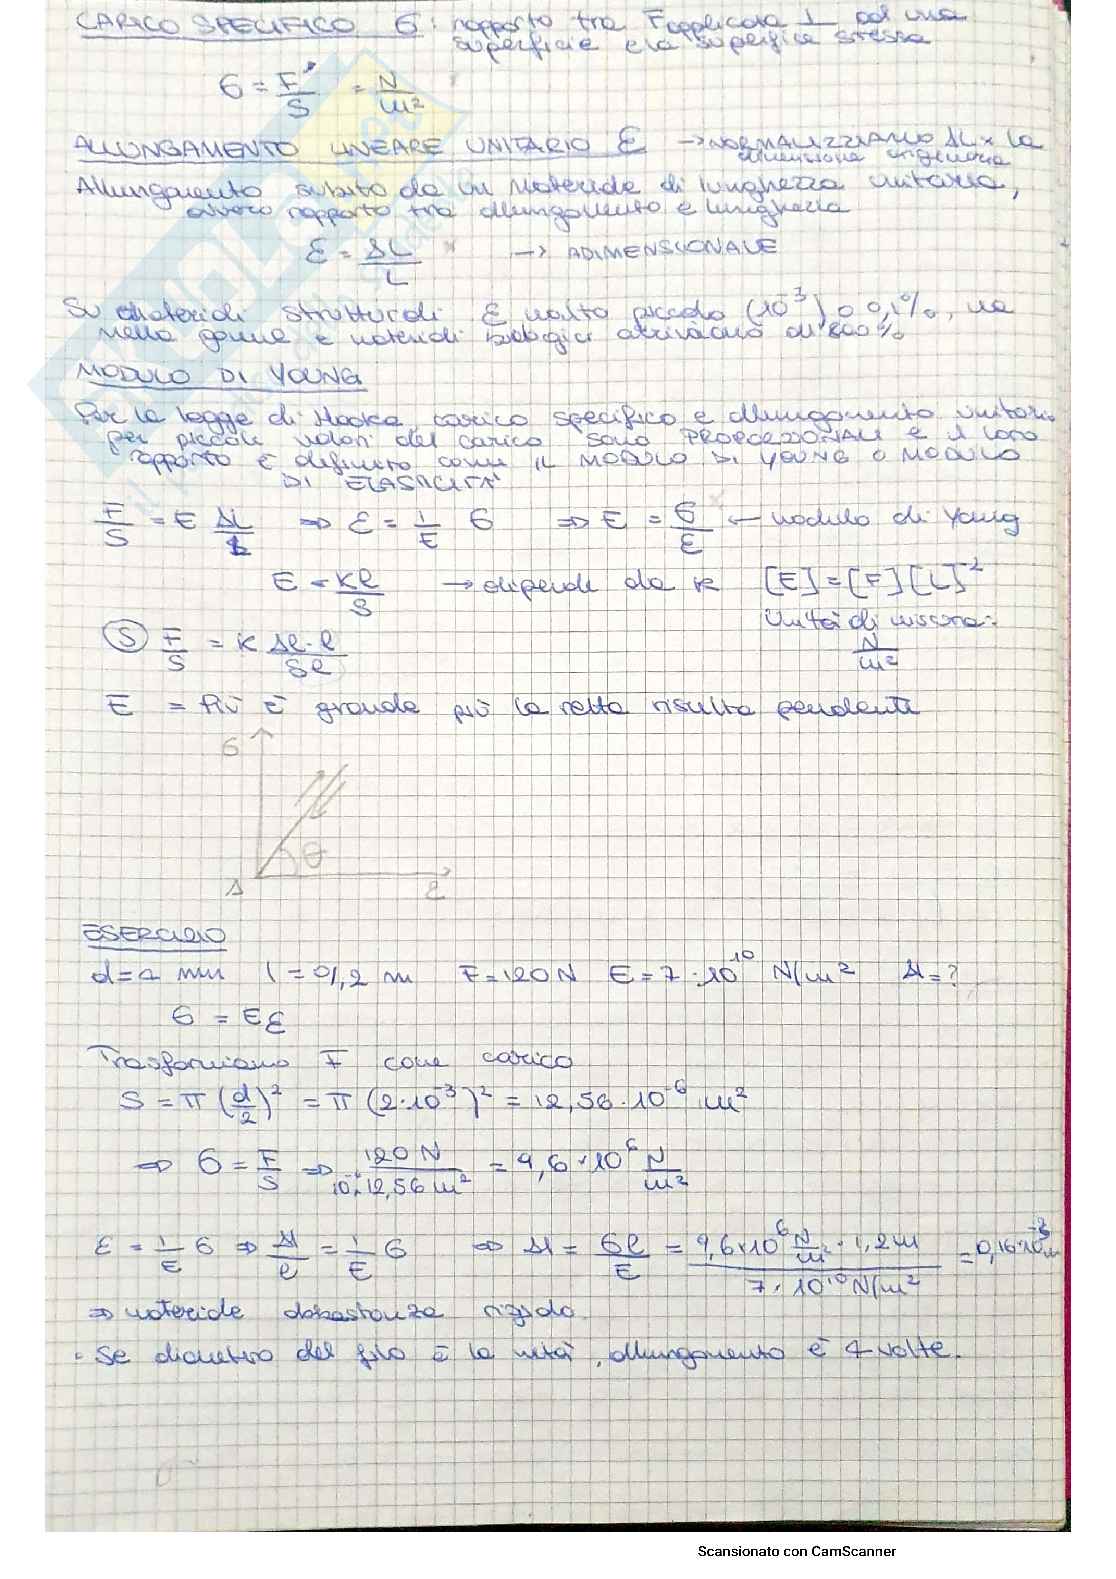 CARICO SPECIFICO σ: rapporto tra F applicata ⊥ ad una
superficie e la superficie stessa
σ = F/S = N/m²
ALLUNGAMENTO LINEARE UNITARIO ε → NORMALIZZIAMO ΔL x la
dimensione originaria
Allungamento subito da un materiale di lunghezza unitaria,
ovvero rapporto tra allungamento e lunghezza
ε = ΔL/L → ADIMENSIONALE
Su materiali strutturali ε molto piccolo (10⁻³) o 0,1%, ma
nella gomma e materiali biologici arriviamo all'800%
MODULO DI YOUNG
Per la legge di Hooke carico specifico e allungamento unitario
per piccoli valori del carico sono PROPORZIONALI e il loro
rapporto è definito come IL MODULO DI YOUNG O MODULO
DI ELASTICITÀ
F/S = E ΔL/L ⇒ ε = 1/E σ ⇒ E = σ/ε ← modulo di Young
E = Kl/S → dipende da K [E]=[F][L]⁻²
Unità di misura:
N/m²
(S) F/S = K Δl·l/Sl
E = più è grande più la retta risulta pendente
σ
θ
Δ ε
ESERCIZIO
d=4 mm l=1,2 m F=120N E=7·10¹⁰ N/m² Δl=?
σ = Eε
Trasformiamo F come carico
S = π(d/2)² = π(2·10⁻³)² = 12,56·10⁻⁶ m²
⇒ σ = F/S ⇒ 120N/10⁻⁶·12,56 m² = 9,6×10⁶ N/m²
ε = 1/E σ ⇒ Δl/l = 1/E σ ⇒ Δl = σl/E = 9,6×10⁶ N/m² · 1,2m / 7·10¹⁰ N/m² = 0,16×10⁻³m
⇒ materiale abbastanza rigido.
• Se diametro del filo è la metà, allungamento è 4 volte.
Scansionato con CamScanner